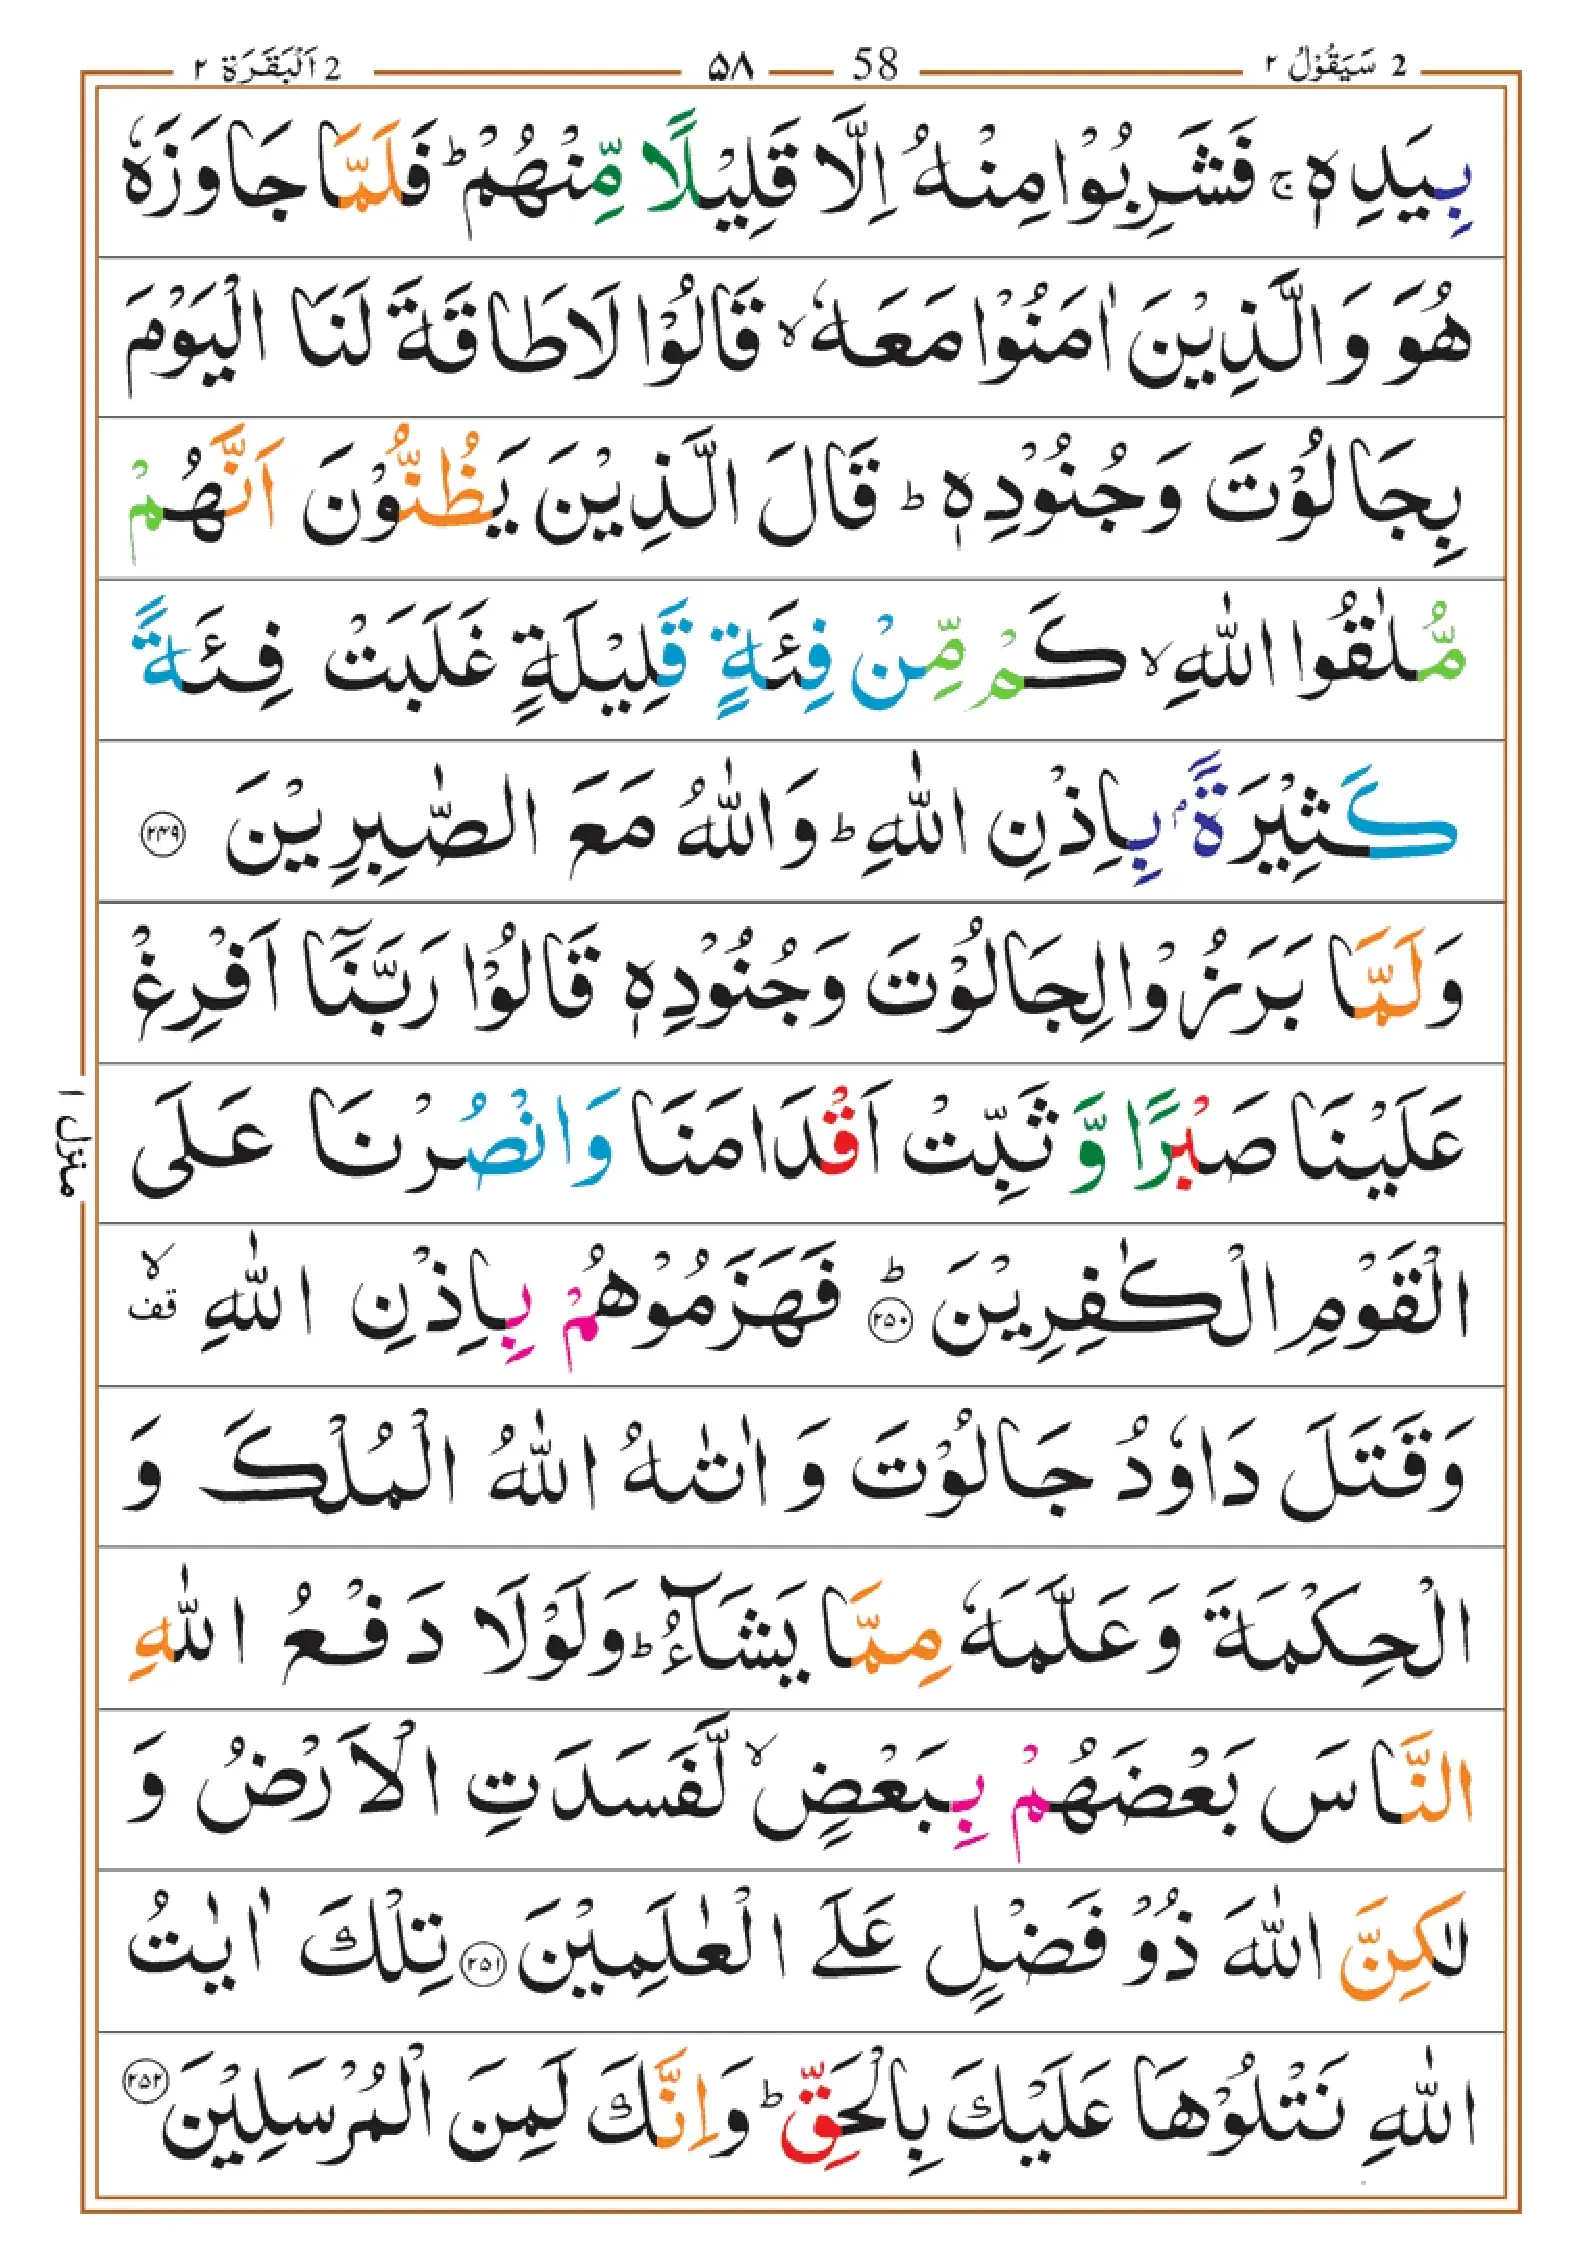 2 سَيَقُوْلُ ٢ 58 ۵۸ 2 اَلْبَقَرَة ٢
بِيَدِهٖ ۚ فَشَرِبُوْا مِنْهُ اِلَّا قَلِيْلًا مِّنْهُمْ ؕ فَلَمَّا جَاوَزَهٗ
هُوَ وَالَّذِيْنَ اٰمَنُوْا مَعَهٗ ۙ قَالُوْا لَا طَاقَةَ لَنَا الْيَوْمَ
بِجَالُوْتَ وَجُنُوْدِهٖ ؕ قَالَ الَّذِيْنَ يَظُنُّوْنَ اَنَّهُمْ
مُّلٰقُوا اللّٰهِ ۙ كَمْ مِّنْ فِئَةٍ قَلِيْلَةٍ غَلَبَتْ فِئَةً
كَثِيْرَةًۢ بِاِذْنِ اللّٰهِ ؕ وَاللّٰهُ مَعَ الصّٰبِرِيْنَ ۲۴۹
وَلَمَّا بَرَزُوْا لِجَالُوْتَ وَجُنُوْدِهٖ قَالُوْا رَبَّنَآ اَفْرِغْ
عَلَيْنَا صَبْرًا وَّ ثَبِّتْ اَقْدَامَنَا وَانْصُرْنَا عَلَى
الْقَوْمِ الْكٰفِرِيْنَ ؕ ۲۵۰ فَهَزَمُوْهُمْ بِاِذْنِ اللّٰهِ ۙ قف
وَقَتَلَ دَاوٗدُ جَالُوْتَ وَ اٰتٰىهُ اللّٰهُ الْمُلْكَ وَ
الْحِكْمَةَ وَعَلَّمَهٗ مِمَّا يَشَآءُ ؕ وَلَوْلَا دَفْعُ اللّٰهِ
النَّاسَ بَعْضَهُمْ بِبَعْضٍ ۙ لَّفَسَدَتِ الْاَرْضُ وَ
لٰكِنَّ اللّٰهَ ذُوْ فَضْلٍ عَلَى الْعٰلَمِيْنَ ۲۵۱ تِلْكَ اٰيٰتُ
اللّٰهِ نَتْلُوْهَا عَلَيْكَ بِالْحَقِّ ؕ وَاِنَّكَ لَمِنَ الْمُرْسَلِيْنَ ۲۵۲
منزل ۱